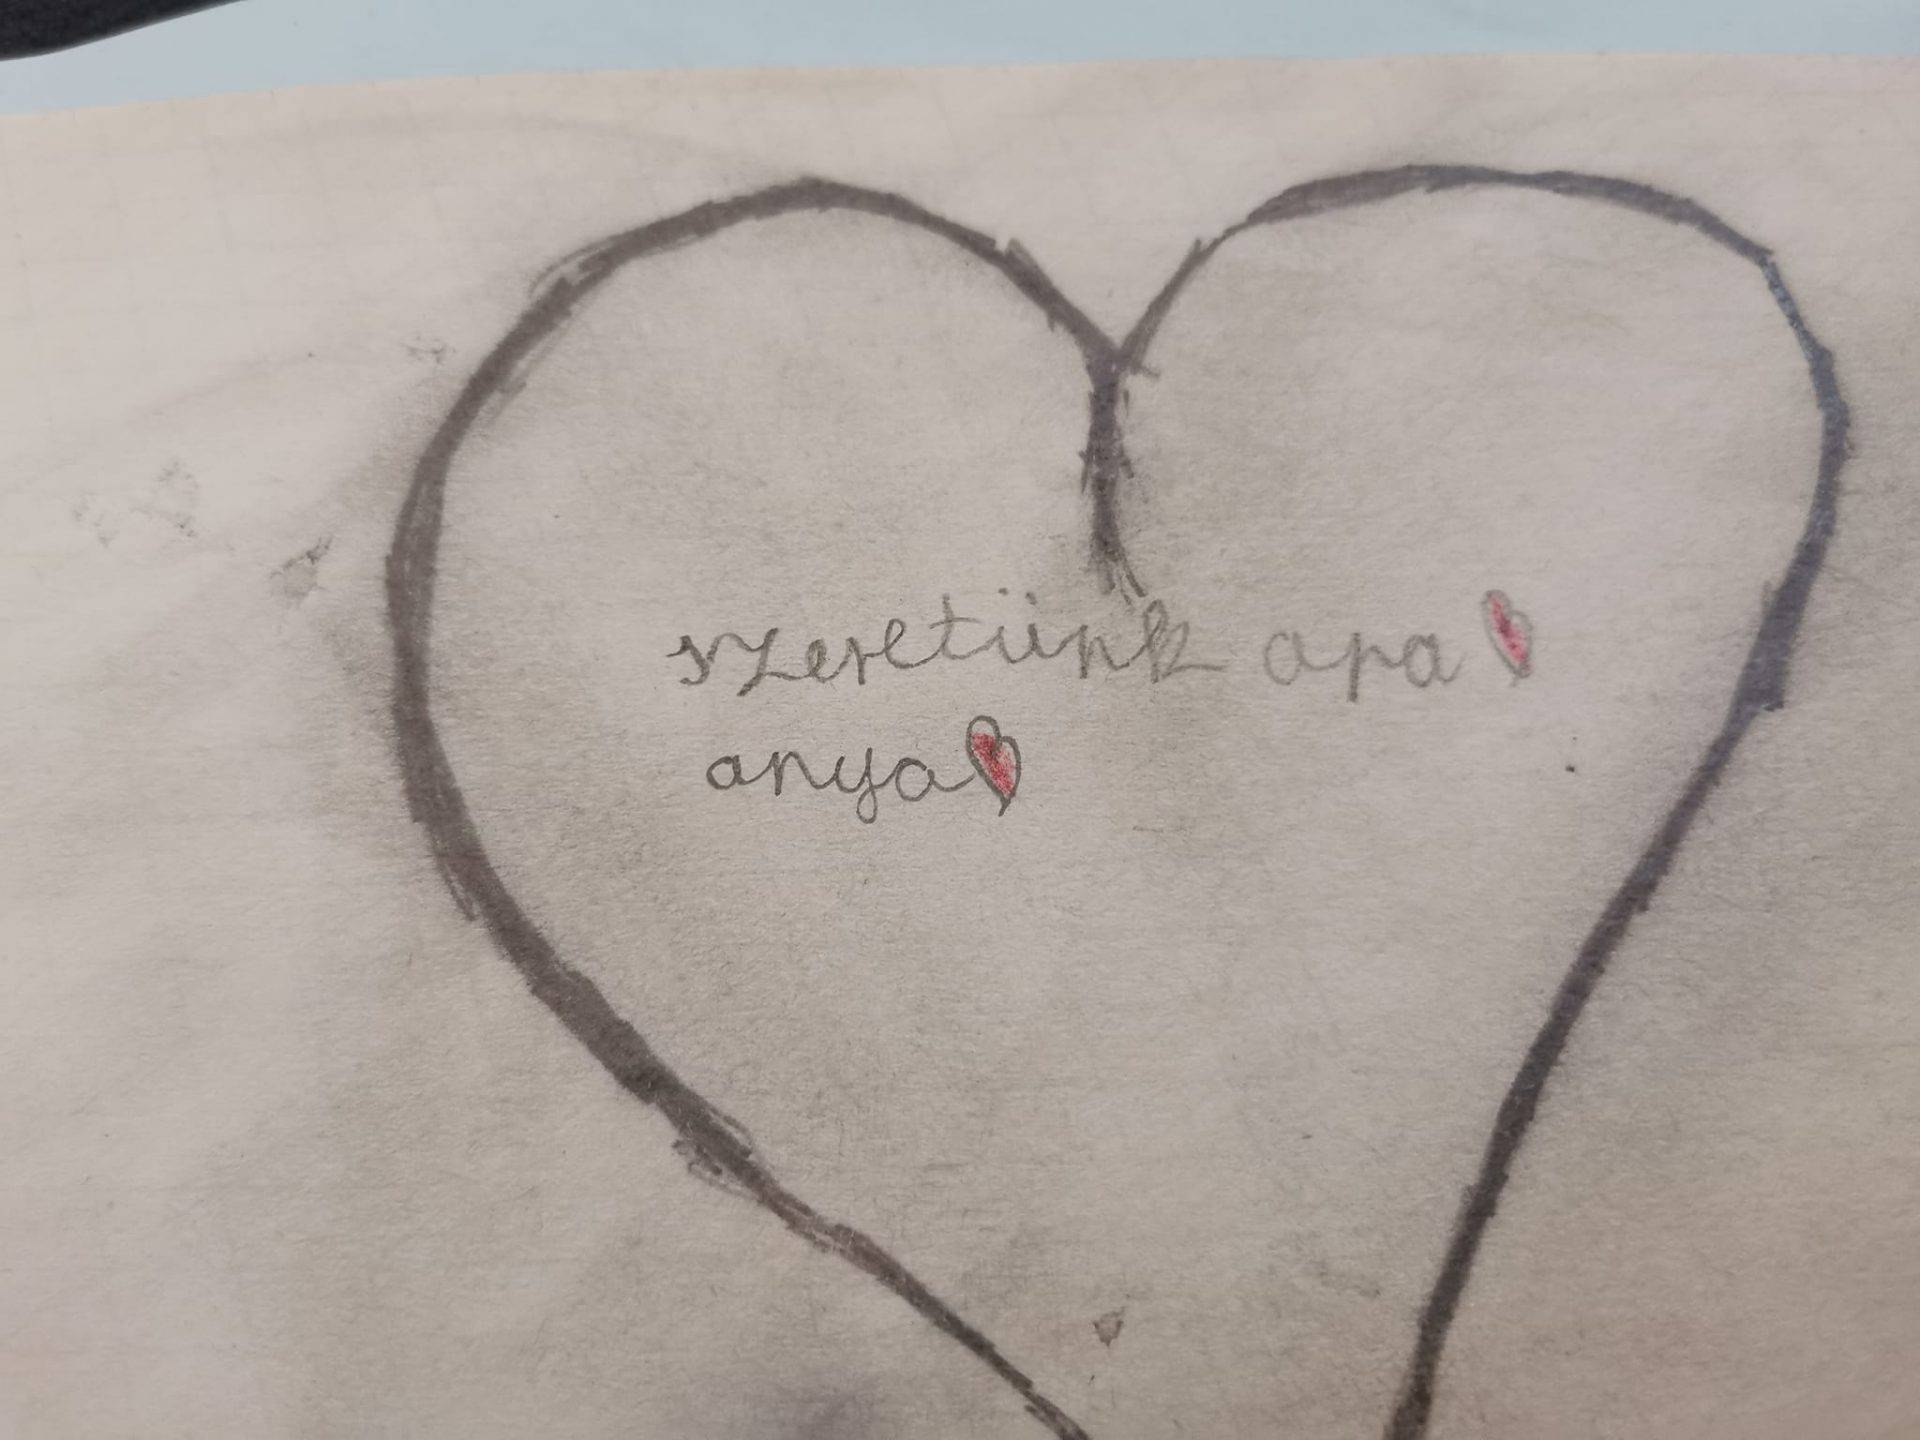 szeretünk apa
anya